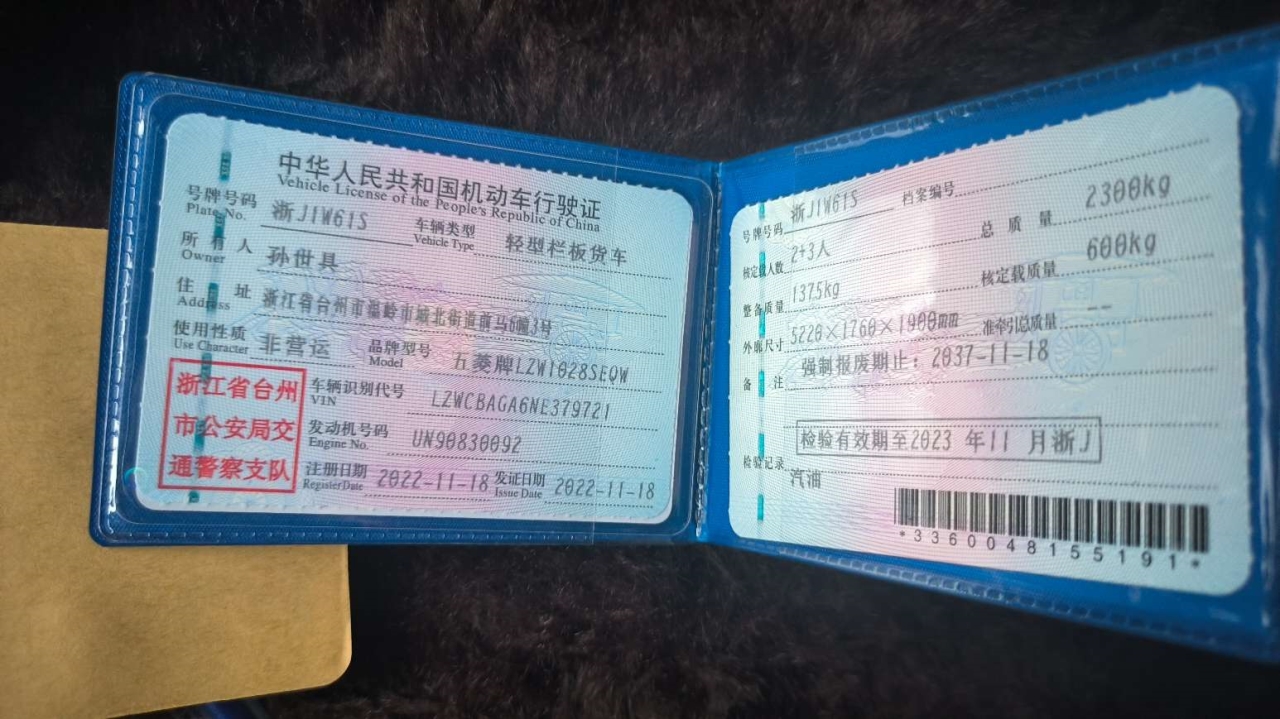 中华人民共和国机动车行驶证
Vehicle License of the People's Republic of China
号牌号码 浙J1W61S 车辆类型 轻型栏板货车
Plate No. Vehicle Type
所有人 孙世具
Owner
住址 浙江省台州市温岭市城北街道前马6幢3号
Address
使用性质 非营运 品牌型号 五菱牌LZW1028SEQW
Use Character Model
浙江省台州
市公安局交
通警察支队
车辆识别代号 LZWCBAGA6NE379721
VIN
发动机号码 UN90830092
Engine No.
注册日期 2022-11-18 发证日期 2022-11-18
Register Date Issue Date
号牌号码 浙J1W61S 档案编号
核定载人数 2+3人 总质量 2300kg
整备质量 1375kg 核定载质量 600kg
外廓尺寸 5220×1760×1900mm 准牵引总质量 --
备注 强制报废期止：2037-11-18
检验有效期至2023 年11 月浙J
检验记录
汽油
*3360048155191*